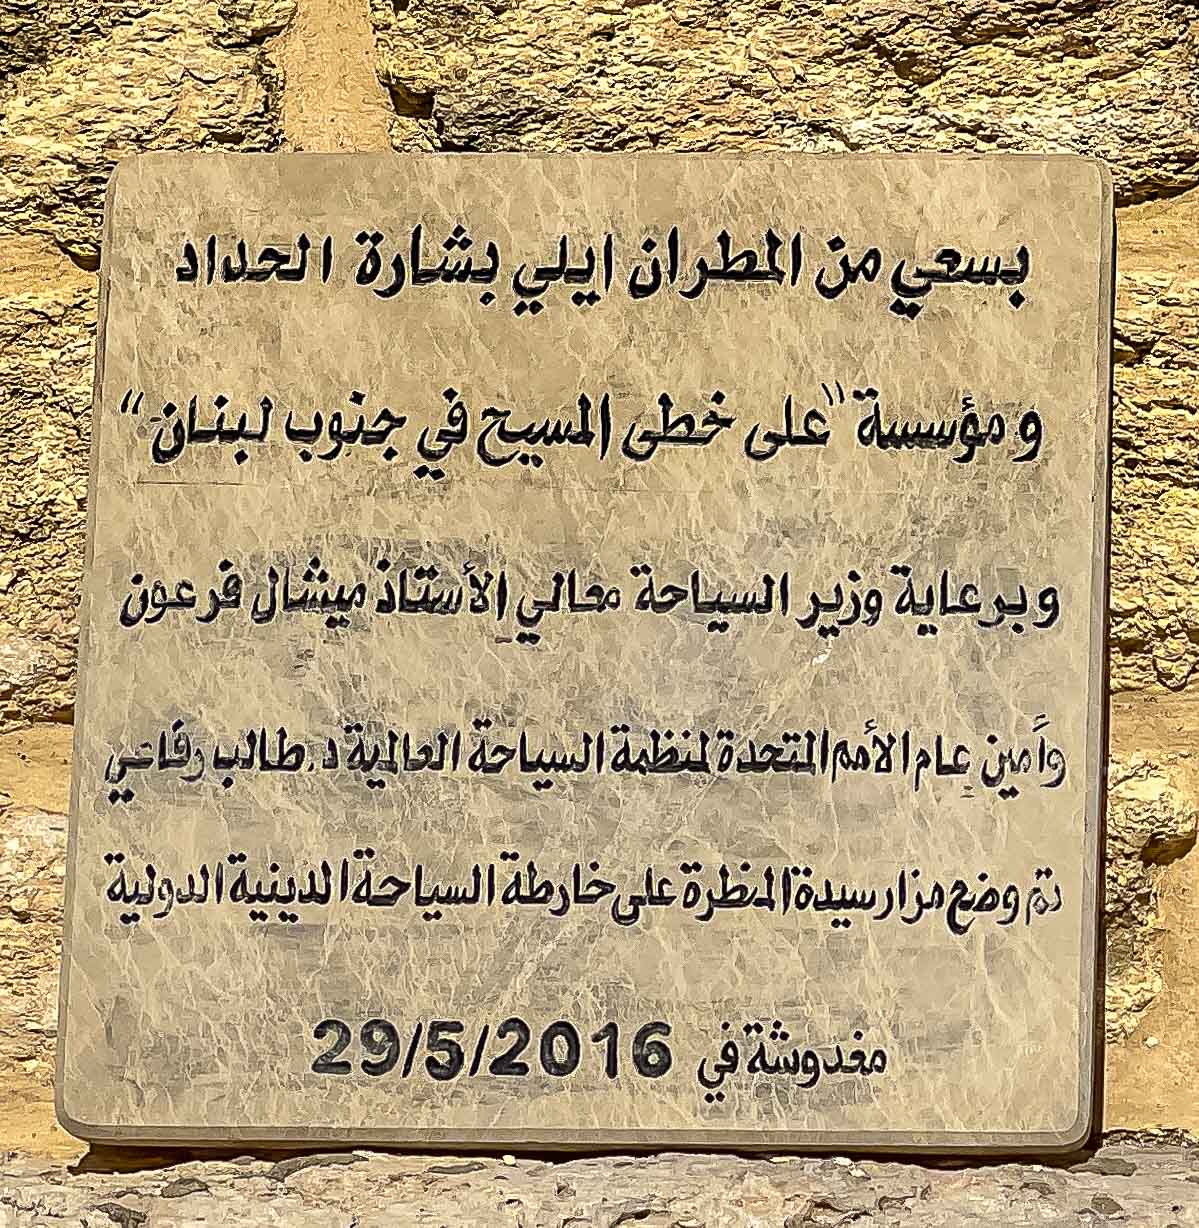 بسعي من المطران ايلي بشارة الحداد
و مؤسسة "على خطى المسيح في جنوب لبنان"
وبرعاية وزير السياحة معالي الأستاذ ميشال فرعون
وأمين عام الأمم المتحدة لمنظمة السياحة العالمية د. طالب رفاعي
تم وضع مزار سيدة المنظرة على خارطة السياحة الدينية الدولية
مغدوشة في 29/5/2016